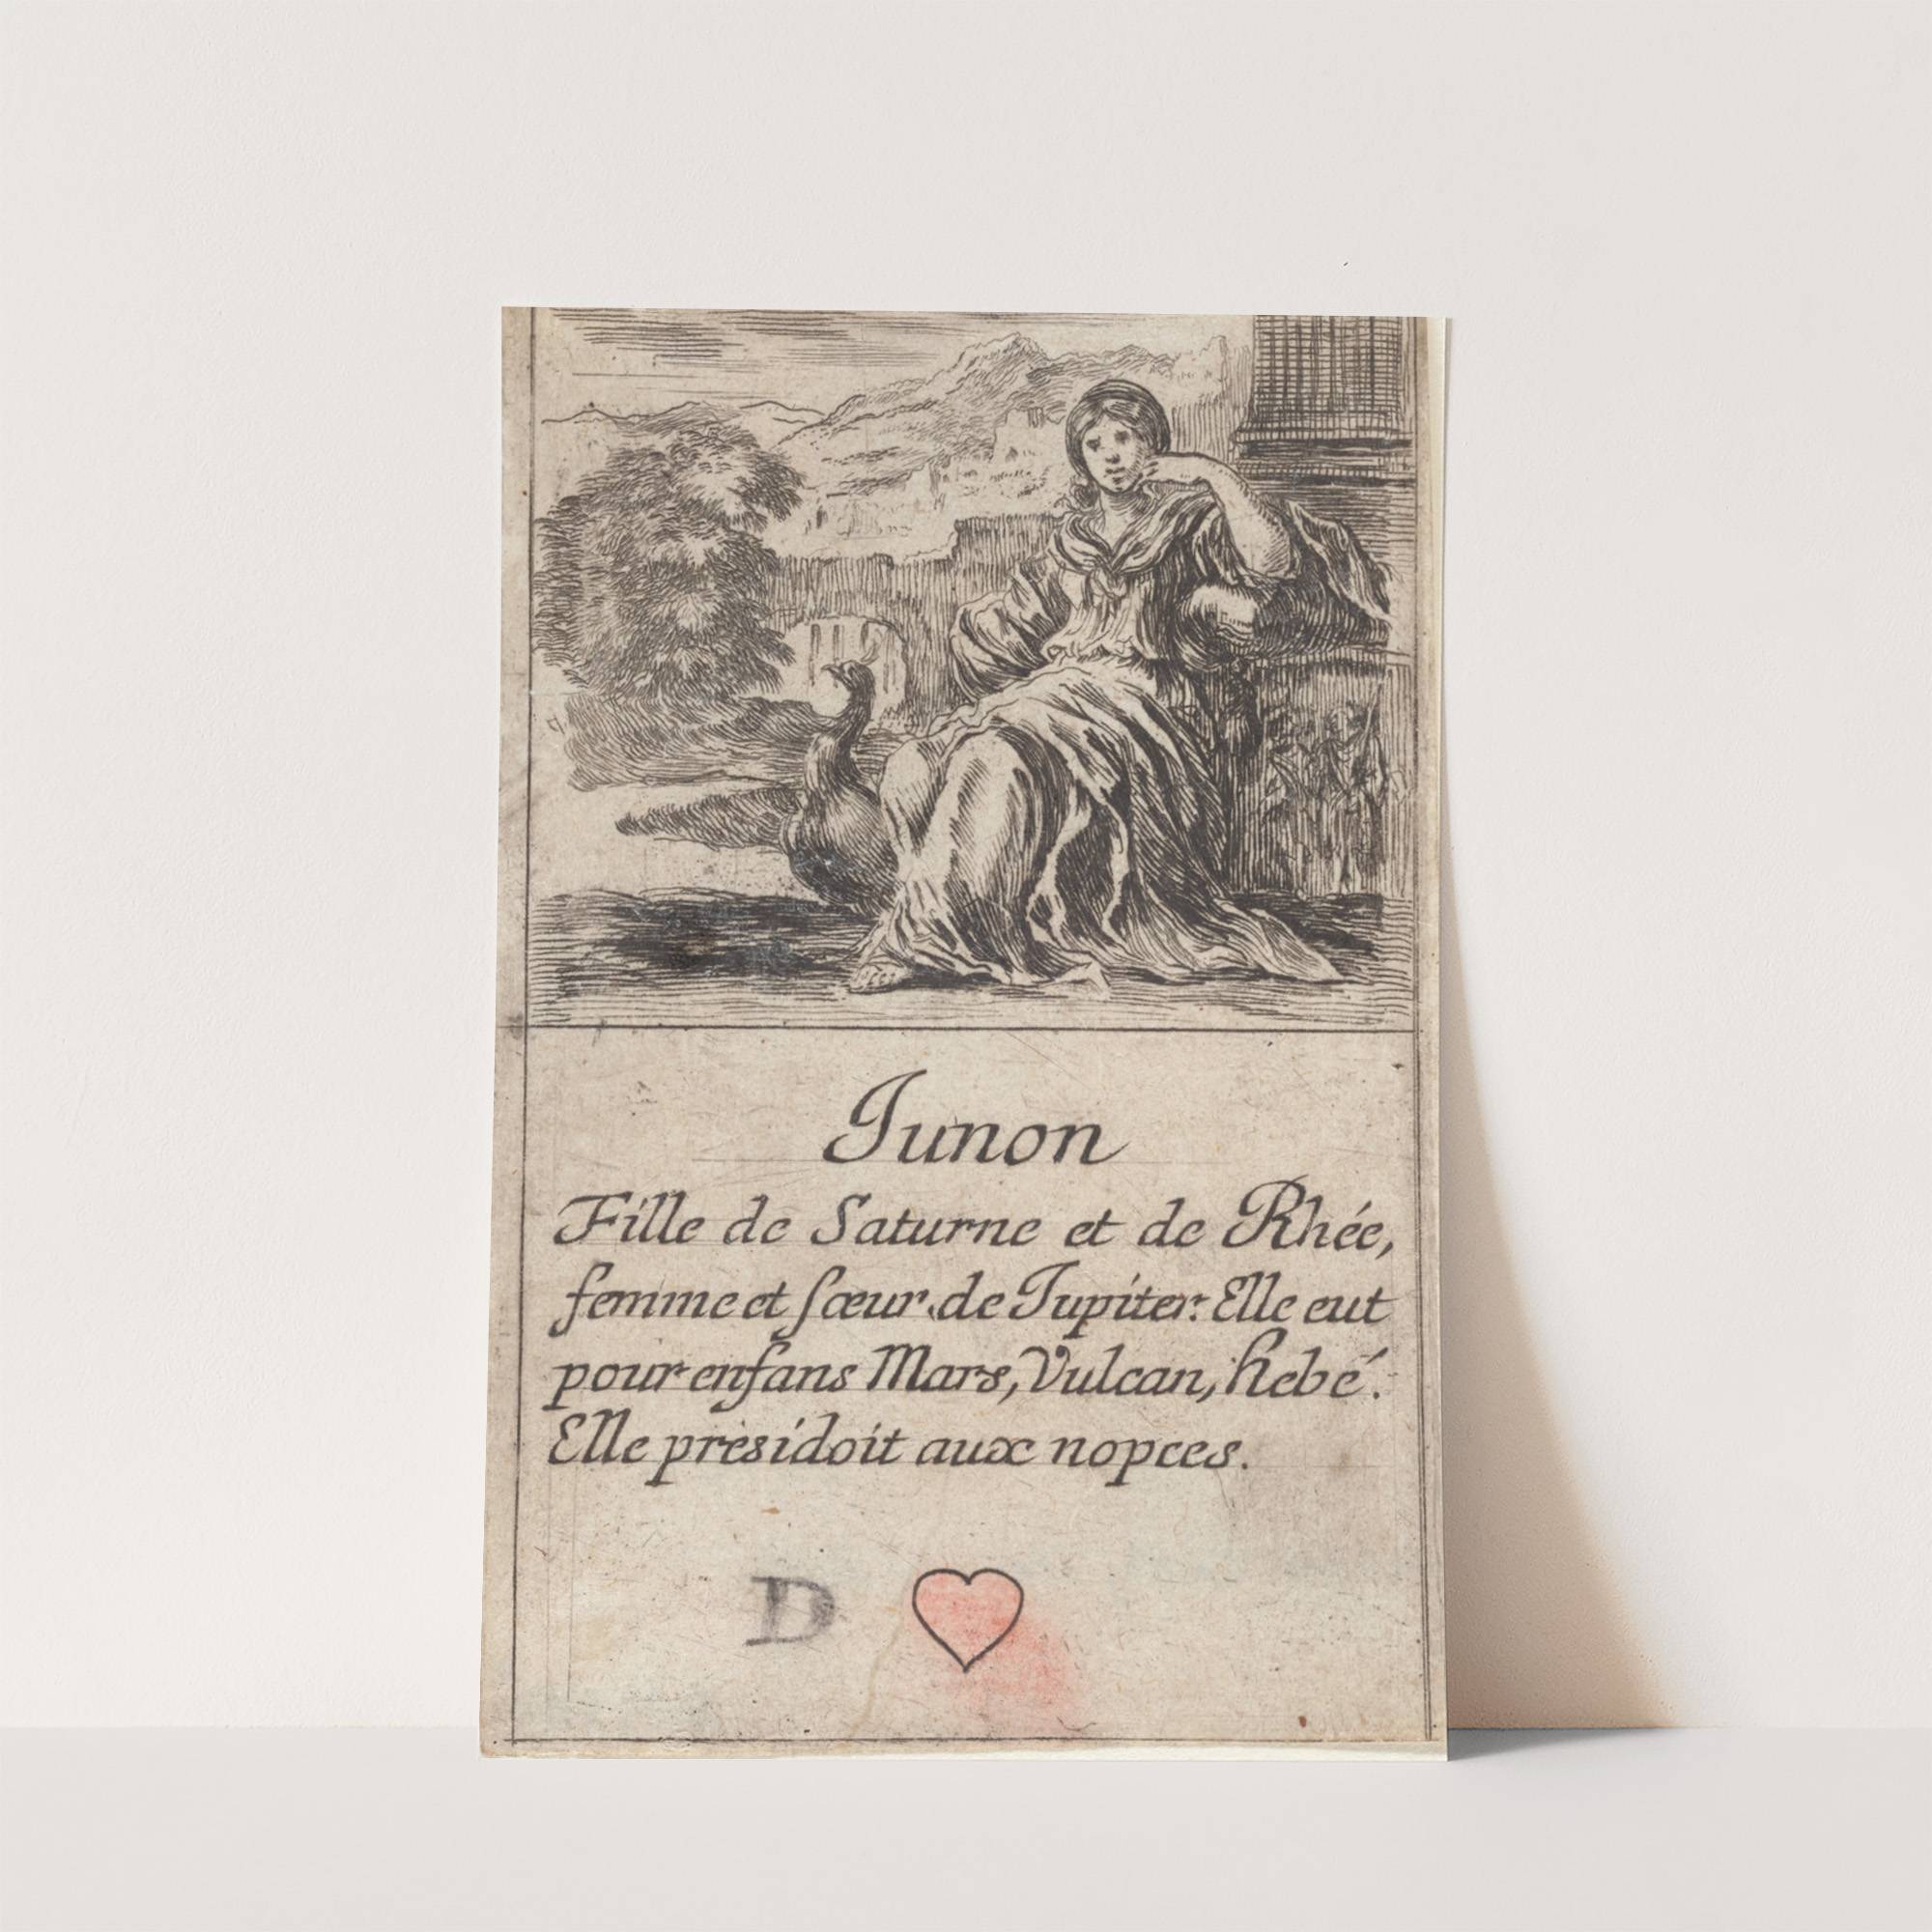 Iunon
Fille de Saturne et de Rhée,
femme et sœur de Iupiter. Elle eut
pour enfans Mars, Vulcan, Hebé.
Elle presidoit aux nopces.
D